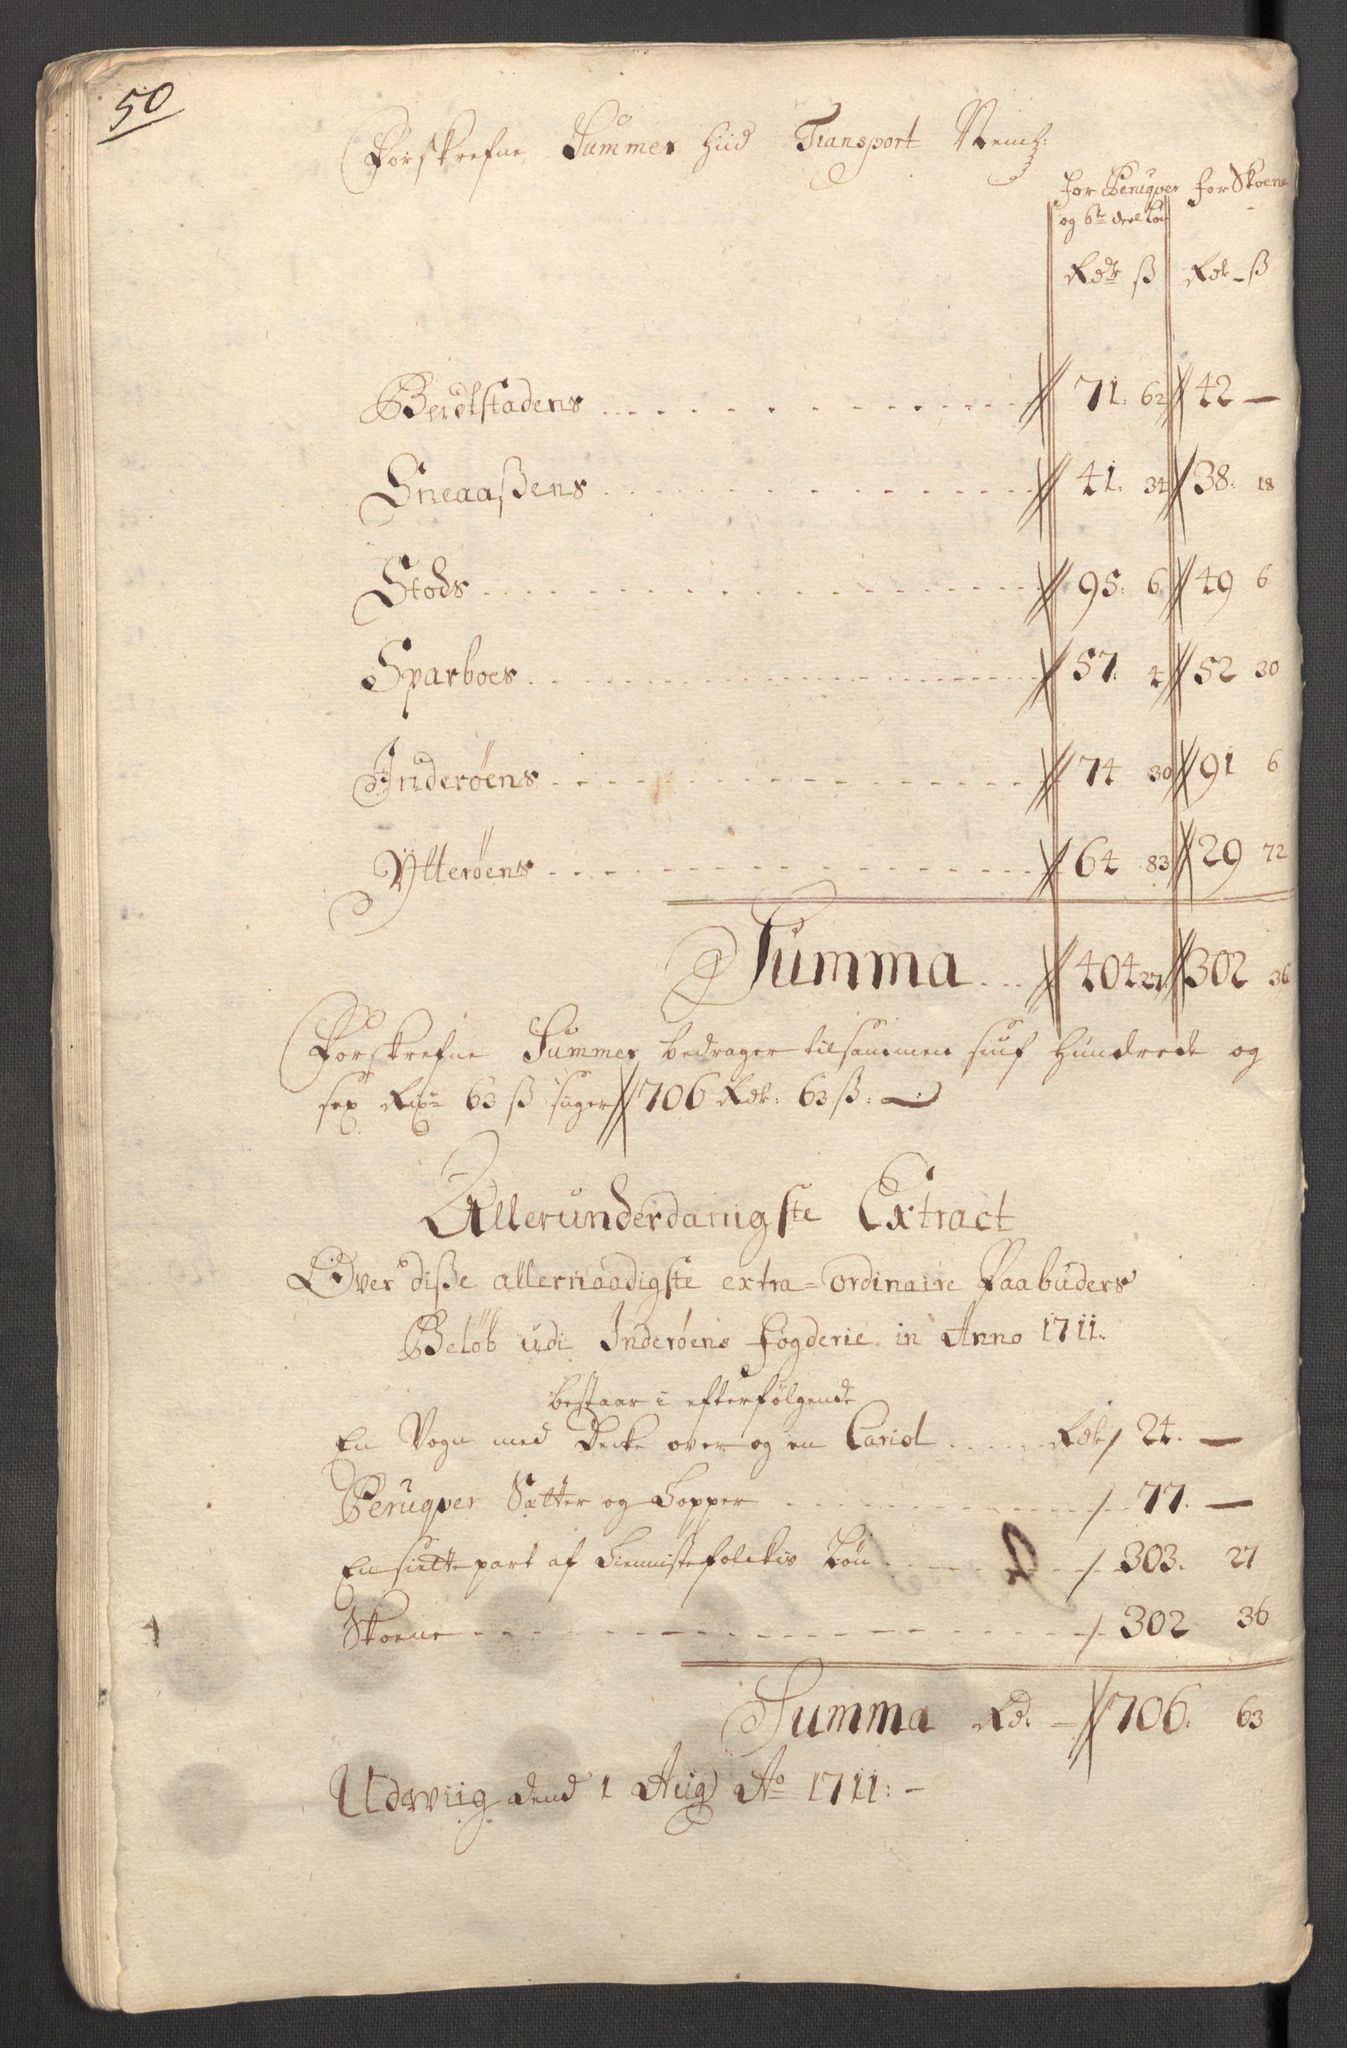 50
Forskrefne Summer hiid Transport Neml:
for Peruqver for Skoene
og 6te deel Løn
Rdr ß Rdr ß
Berdstadens 71: 62 42 —
Sneaaßens 41: 34 38: 18
Stods 95: 6 49 6
Sparboes 57: 4 52 30
Inderøens 74 30 91 6
Ytterøens 64 83 29 72
Summa 404 27 302 36
Forskrefne Summer bedrager tilsammen siuf hundrede og
sex Rixdr 63 ß siger 706 Rdr: 63 ß:
Allerunderdanigste Extract
Over diße allernaadigste extra-ordinaire Paabuders
Beløb udi Inderøens fogderie in Anno 1711.
bestaar i efterfølgende
En Vogn med Decke over og en Cariol Rdr 24. —
Peruqver Sætter og Topper 77. —
En siette part af Tienniste folckis Løn 303. 27
Skoene 302 36
Summa Rd. 706. 63
Udvviig dend 1 Aug Ao 1711: -